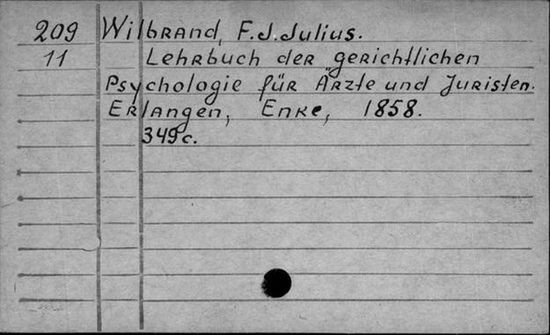 209 Wilbrand, F.J. Julius.
11 Lehrbuch der gerichtlichen
Psychologie für Ärzte und Juristen.
Erlangen, Enke, 1858.
349 c.